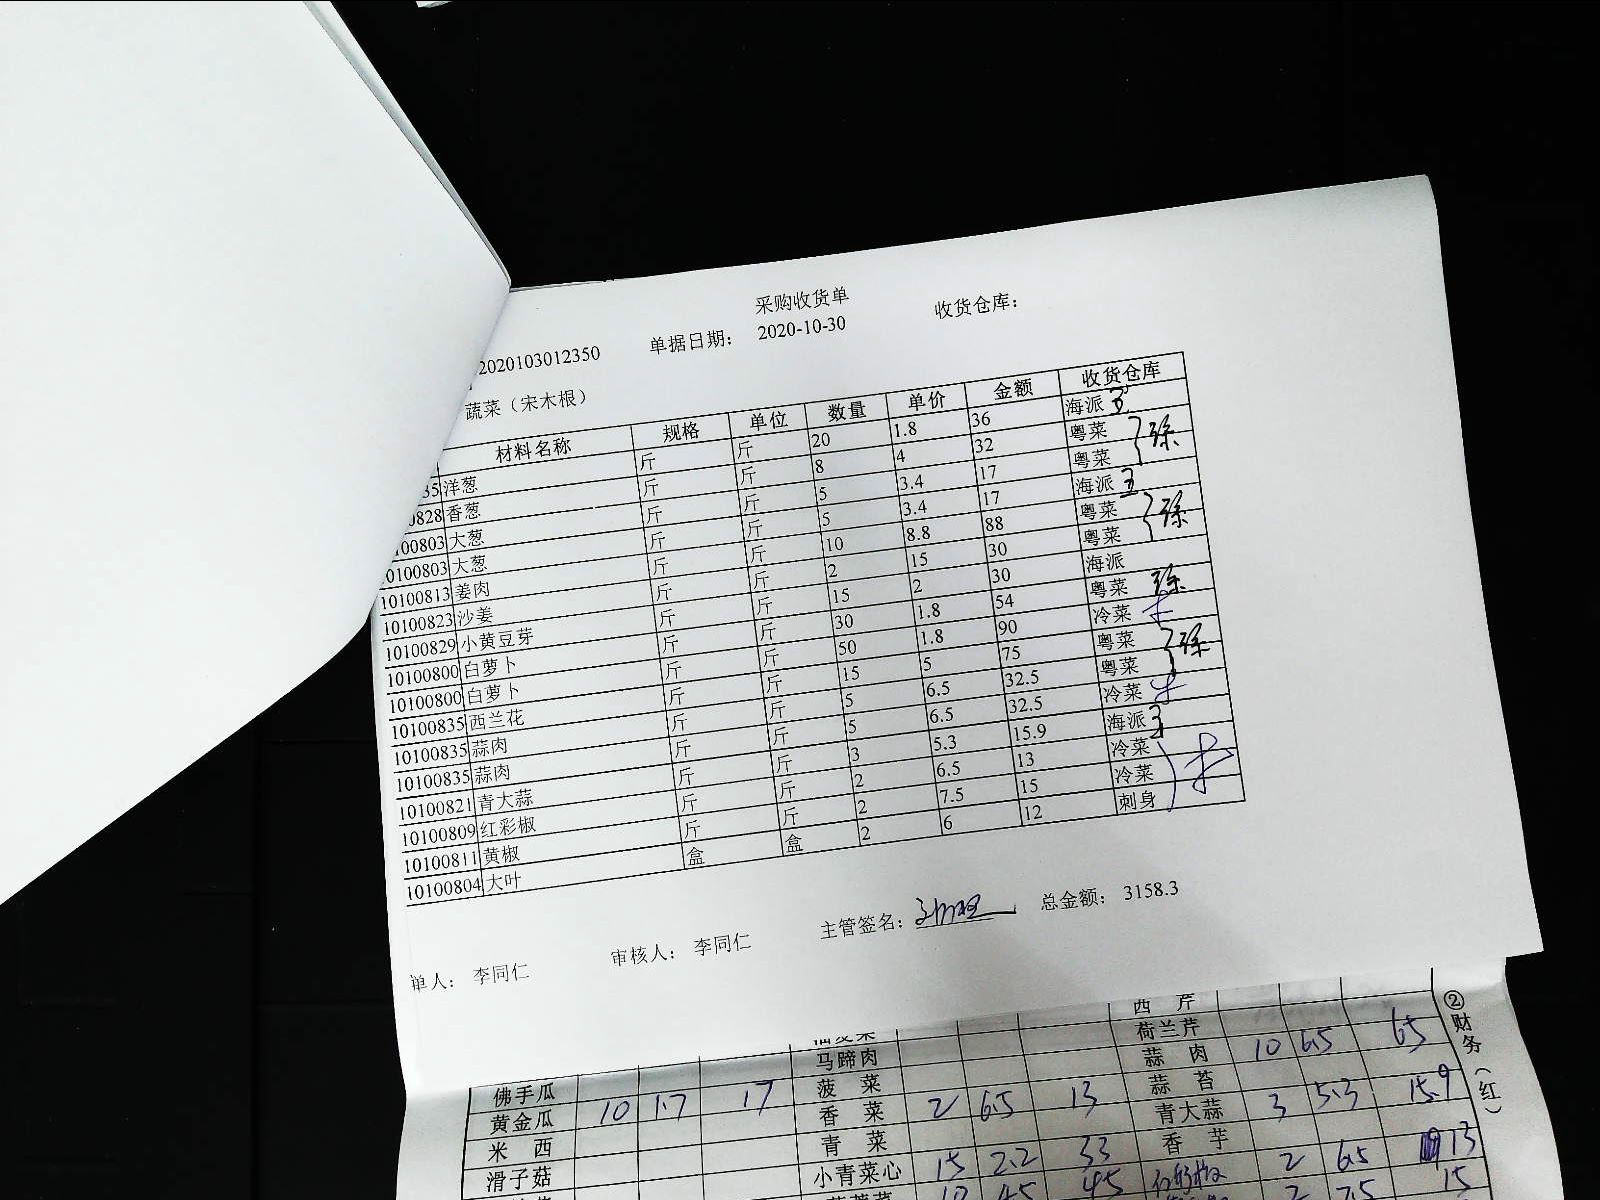 采购收货单
2020103012350 单据日期： 2020-10-30 收货仓库：
蔬菜（宋木根）
材料名称 规格 单位 数量 单价 金额 收货仓库
35 洋葱 斤 斤 20 1.8 36 海派 王
0828 香葱 斤 斤 8 4 32 粤菜 徐
100803 大葱 斤 斤 5 3.4 17 粤菜
0100803 大葱 斤 斤 5 3.4 17 海派 王
10100813 姜肉 斤 斤 10 8.8 88 粤菜 徐
10100823 沙姜 斤 斤 2 15 30 粤菜
10100829 小黄豆芽 斤 斤 15 2 30 海派
10100800 白萝卜 斤 斤 30 1.8 54 粤菜 徐
10100800 白萝卜 斤 斤 50 1.8 90 冷菜
10100835 西兰花 斤 斤 15 5 75 粤菜 徐
10100835 蒜肉 斤 斤 5 6.5 32.5 粤菜
10100835 蒜肉 斤 斤 5 6.5 32.5 冷菜
10100821 青大蒜 斤 斤 3 5.3 15.9 海派 王
10100809 红彩椒 斤 斤 2 6.5 13 冷菜
10100811 黄椒 斤 斤 2 7.5 15 冷菜
10100804 大叶 盒 盒 2 6 12 刺身
单人： 李同仁 审核人： 李同仁 主管签名： 总金额： 3158.3
西芹
荷兰芹
马蹄肉 蒜肉 10 6.5 65
佛手瓜 菠菜 蒜苔
黄金瓜 10 1.7 17 香菜 2 6.5 13 青大蒜 3 5.3 15.9
米西 青菜 香芋
滑子菇 小青菜心 15 2.2 33 红彩椒 2 6.5 13
10 4.5 45 2 7.5 15
②财务（红）